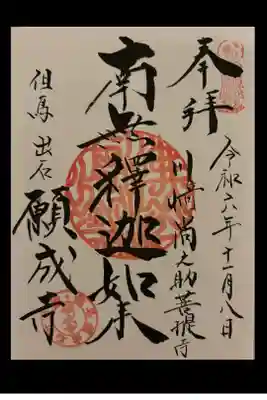 奉拝
令和六年十一月八日
川﨑尚之助菩提寺
南無釋迦如来
但馬 出石
願成寺